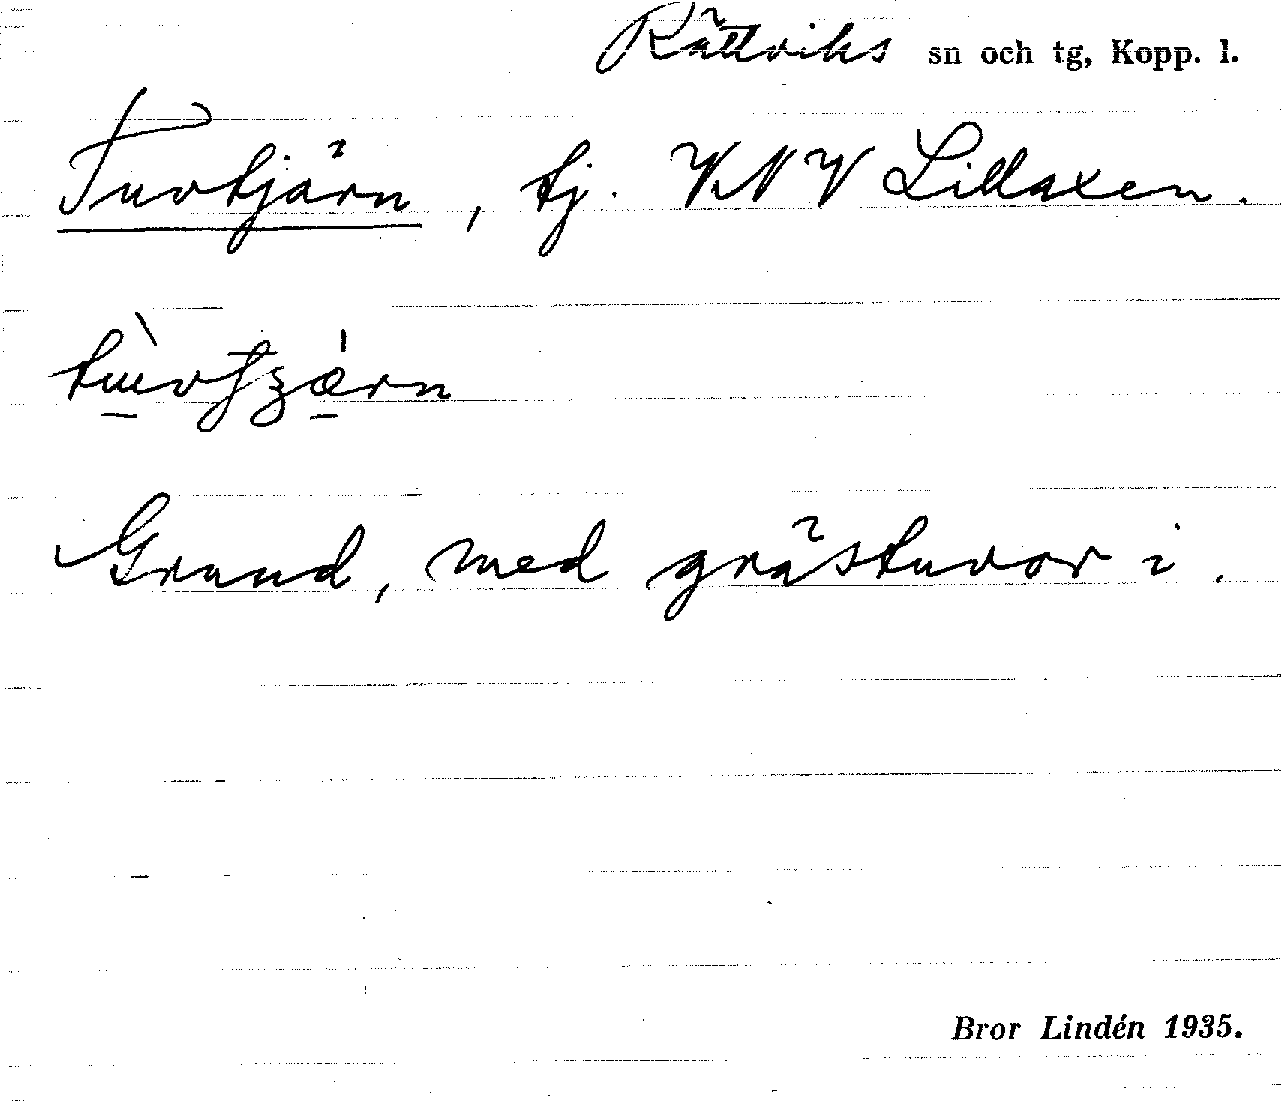 Rättviks sn och tg, Kopp. l.
Tuvtjärn, tj. VNV Lillaxen.
Grund, med grästuvor i.
Bror Lindén 1935.